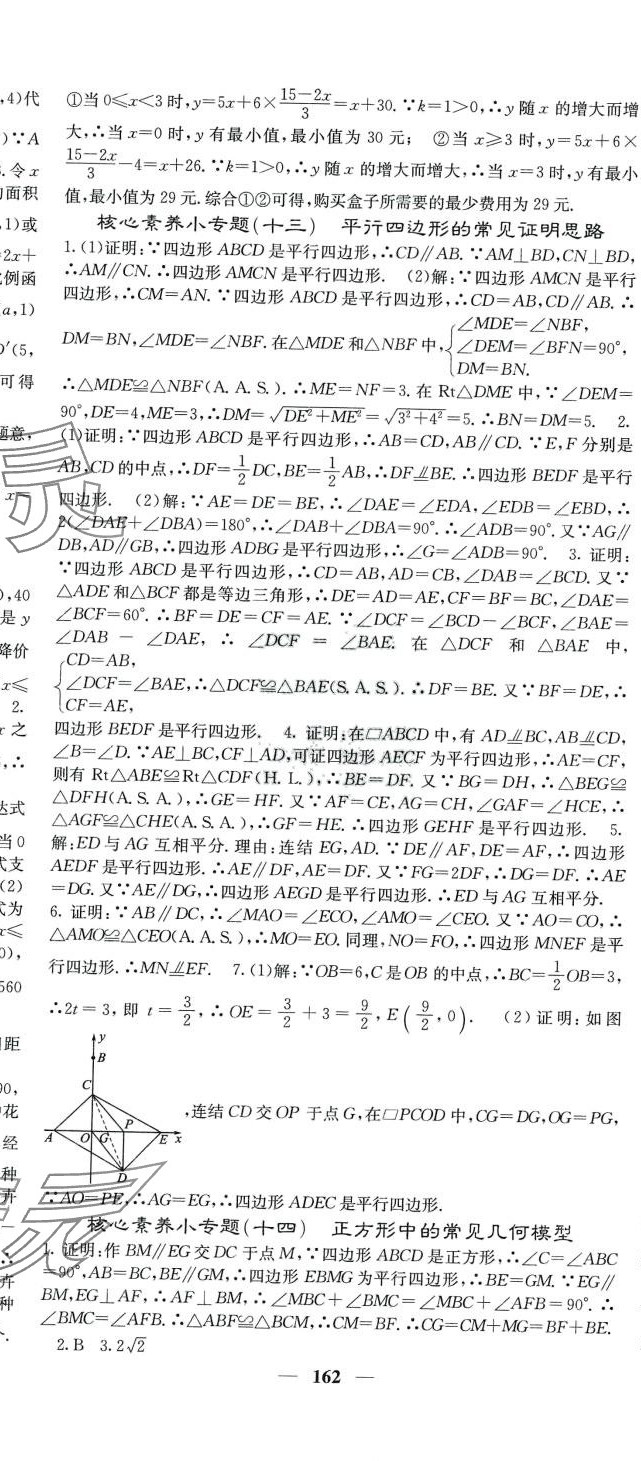 ,4)代
)∵A
.令x
的面积
,1)或
=2x+
比例函
(a,1)
D′(5,
可得
题意,
x=
),40
是y
降价
x≤
2.
x之
,∴
达式
当0
式支
(2)
式为
x≤
0),
560
间距
90,
中花
经
种
卉
一
∴
卉
种
个.
①当0≤x<3时,y=5x+6×(15-2x)/3=x+30.∵k=1>0,∴y随x的增大而增
大,∴当x=0时,y有最小值,最小值为30元; ②当x≥3时,y=5x+6×
(15-2x)/3-4=x+26.∵k=1>0,∴y随x的增大而增大,∴当x=3时,y有最小
值,最小值为29元.综合①②可得,购买盒子所需要的最少费用为29元.
核心素养小专题(十三) 平行四边形的常见证明思路
1.(1)证明:∵四边形ABCD是平行四边形,∴CD∥AB.∵AM⊥BD,CN⊥BD,
∴AM∥CN.∴四边形AMCN是平行四边形. (2)解:∵四边形AMCN是平行
四边形,∴CM=AN.∵四边形ABCD是平行四边形,∴CD=AB,CD∥AB.∴
DM=BN,∠MDE=∠NBF.在△MDE和△NBF中,{∠MDE=∠NBF,
∠DEM=∠BFN=90°,
DM=BN.
∴△MDE≌△NBF(A.A.S.).∴ME=NF=3.在Rt△DME中,∵∠DEM=
90°,DE=4,ME=3,∴DM=√(DE²+ME²)=√(3²+4²)=5.∴BN=DM=5. 2.
(1)证明:∵四边形ABCD是平行四边形,∴AB=CD,AB∥CD.∵E,F分别是
AB,CD的中点,∴DF=1/2DC,BE=1/2AB,∴DF⫽BE.∴四边形BEDF是平行
四边形. (2)解:∵AE=DE=BE,∴∠DAE=∠EDA,∠EDB=∠EBD,∴
2(∠DAE+∠DBA)=180°,∴∠DAB+∠DBA=90°.∴∠ADB=90°.又∵AG∥
DB,AD∥GB,∴四边形ADBG是平行四边形,∴∠G=∠ADB=90°. 3. 证明:
∵四边形ABCD是平行四边形,∴CD=AB,AD=CB,∠DAB=∠BCD.又∵
△ADE和△BCF都是等边三角形,∴DE=AD=AE,CF=BF=BC,∠DAE=
∠BCF=60°.∴BF=DE=CF=AE.∵∠DCF=∠BCD-∠BCF,∠BAE=
∠DAB-∠DAE,∴∠DCF=∠BAE.在△DCF和△BAE中,
{CD=AB,
∠DCF=∠BAE,∴△DCF≌△BAE(S.A.S.).∴DF=BE.又∵BF=DE,∴
CF=AE,
四边形BEDF是平行四边形. 4. 证明:在▱ABCD中,有AD⫽BC,AB⫽CD,
∠B=∠D.∵AE⊥BC,CF⊥AD,可证四边形AECF为平行四边形,∴AE=CF,
则有Rt△ABE≌Rt△CDF(H.L.),∴BE=DF.又∵BG=DH,∴△BEG≌
△DFH(A.S.A.),∴GE=HF.又∵AF=CE,AG=CH,∠GAF=∠HCE,∴
△AGF≌△CHE(A.S.A.),∴GF=HE.∴四边形GEHF是平行四边形. 5.
解:ED与AG互相平分.理由:连结EG,AD.∵DE∥AF,DE=AF,∴四边形
AEDF是平行四边形.∴AE∥DF,AE=DF.又∵FG=2DF,∴DG=DF.∴AE
=DG.又∵AE∥DG,∴四边形AEGD是平行四边形.∴ED与AG互相平分.
6. 证明:∵AB∥DC,∴∠MAO=∠ECO,∠AMO=∠CEO.又∵AO=CO,∴
△AMO≌△CEO(A.A.S.),∴MO=EO.同理,NO=FO,∴四边形MNEF是平
行四边形.∴MN⫽EF. 7.(1)解:∵OB=6,C是OB的中点,∴BC=1/2OB=3,
∴2t=3,即t=3/2,∴OE=3/2+3=9/2,E(9/2,0). (2)证明:如图
y
B
C
A
O
G
P
E
x
D
,连结CD交OP于点G,在▱PCOD中,CG=DG,OG=PG,
∵AO=PE,∴AG=EG,∴四边形ADEC是平行四边形.
核心素养小专题(十四) 正方形中的常见几何模型
1. 证明:作BM∥EG交DC于点M,∵四边形ABCD是正方形,∴∠C=∠ABC
=90°,AB=BC,BE∥GM,∴四边形EBMG为平行四边形,∴BE=GM.∵EG∥
BM,EG⊥AF,∴AF⊥BM,∴∠MBC+∠BMC=∠MBC+∠AFB=90°.∴
∠BMC=∠AFB.∴△ABF≌△BCM,∴CM=BF.∴CG=CM+MG=BF+BE.
2.B 3.2√2
— 162 —